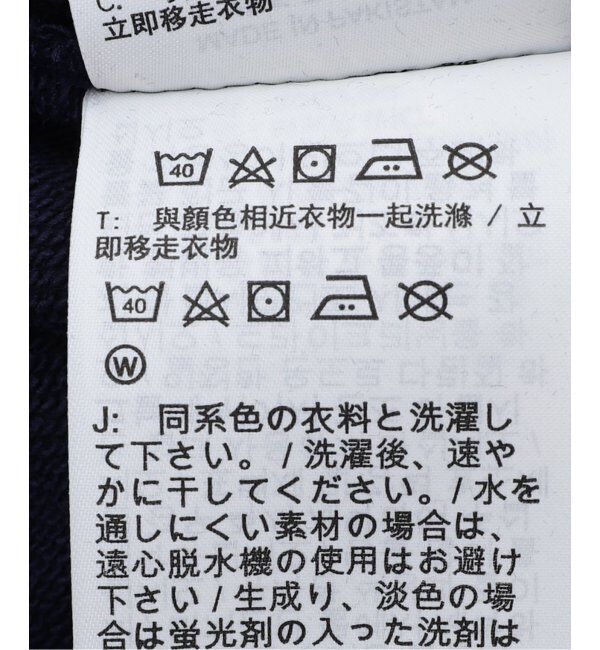 C:
立即移走衣物
MADE IN PAKISTAN
40
T: 與顏色相近衣物一起洗滌 / 立
即移走衣物
40
W
J: 同系色の衣料と洗濯し
て下さい。/ 洗濯後、速や
かに干してください。/ 水を
通しにくい素材の場合は、
遠心脱水機の使用はお避け
下さい / 生成り、淡色の場
合は蛍光剤の入った洗剤は